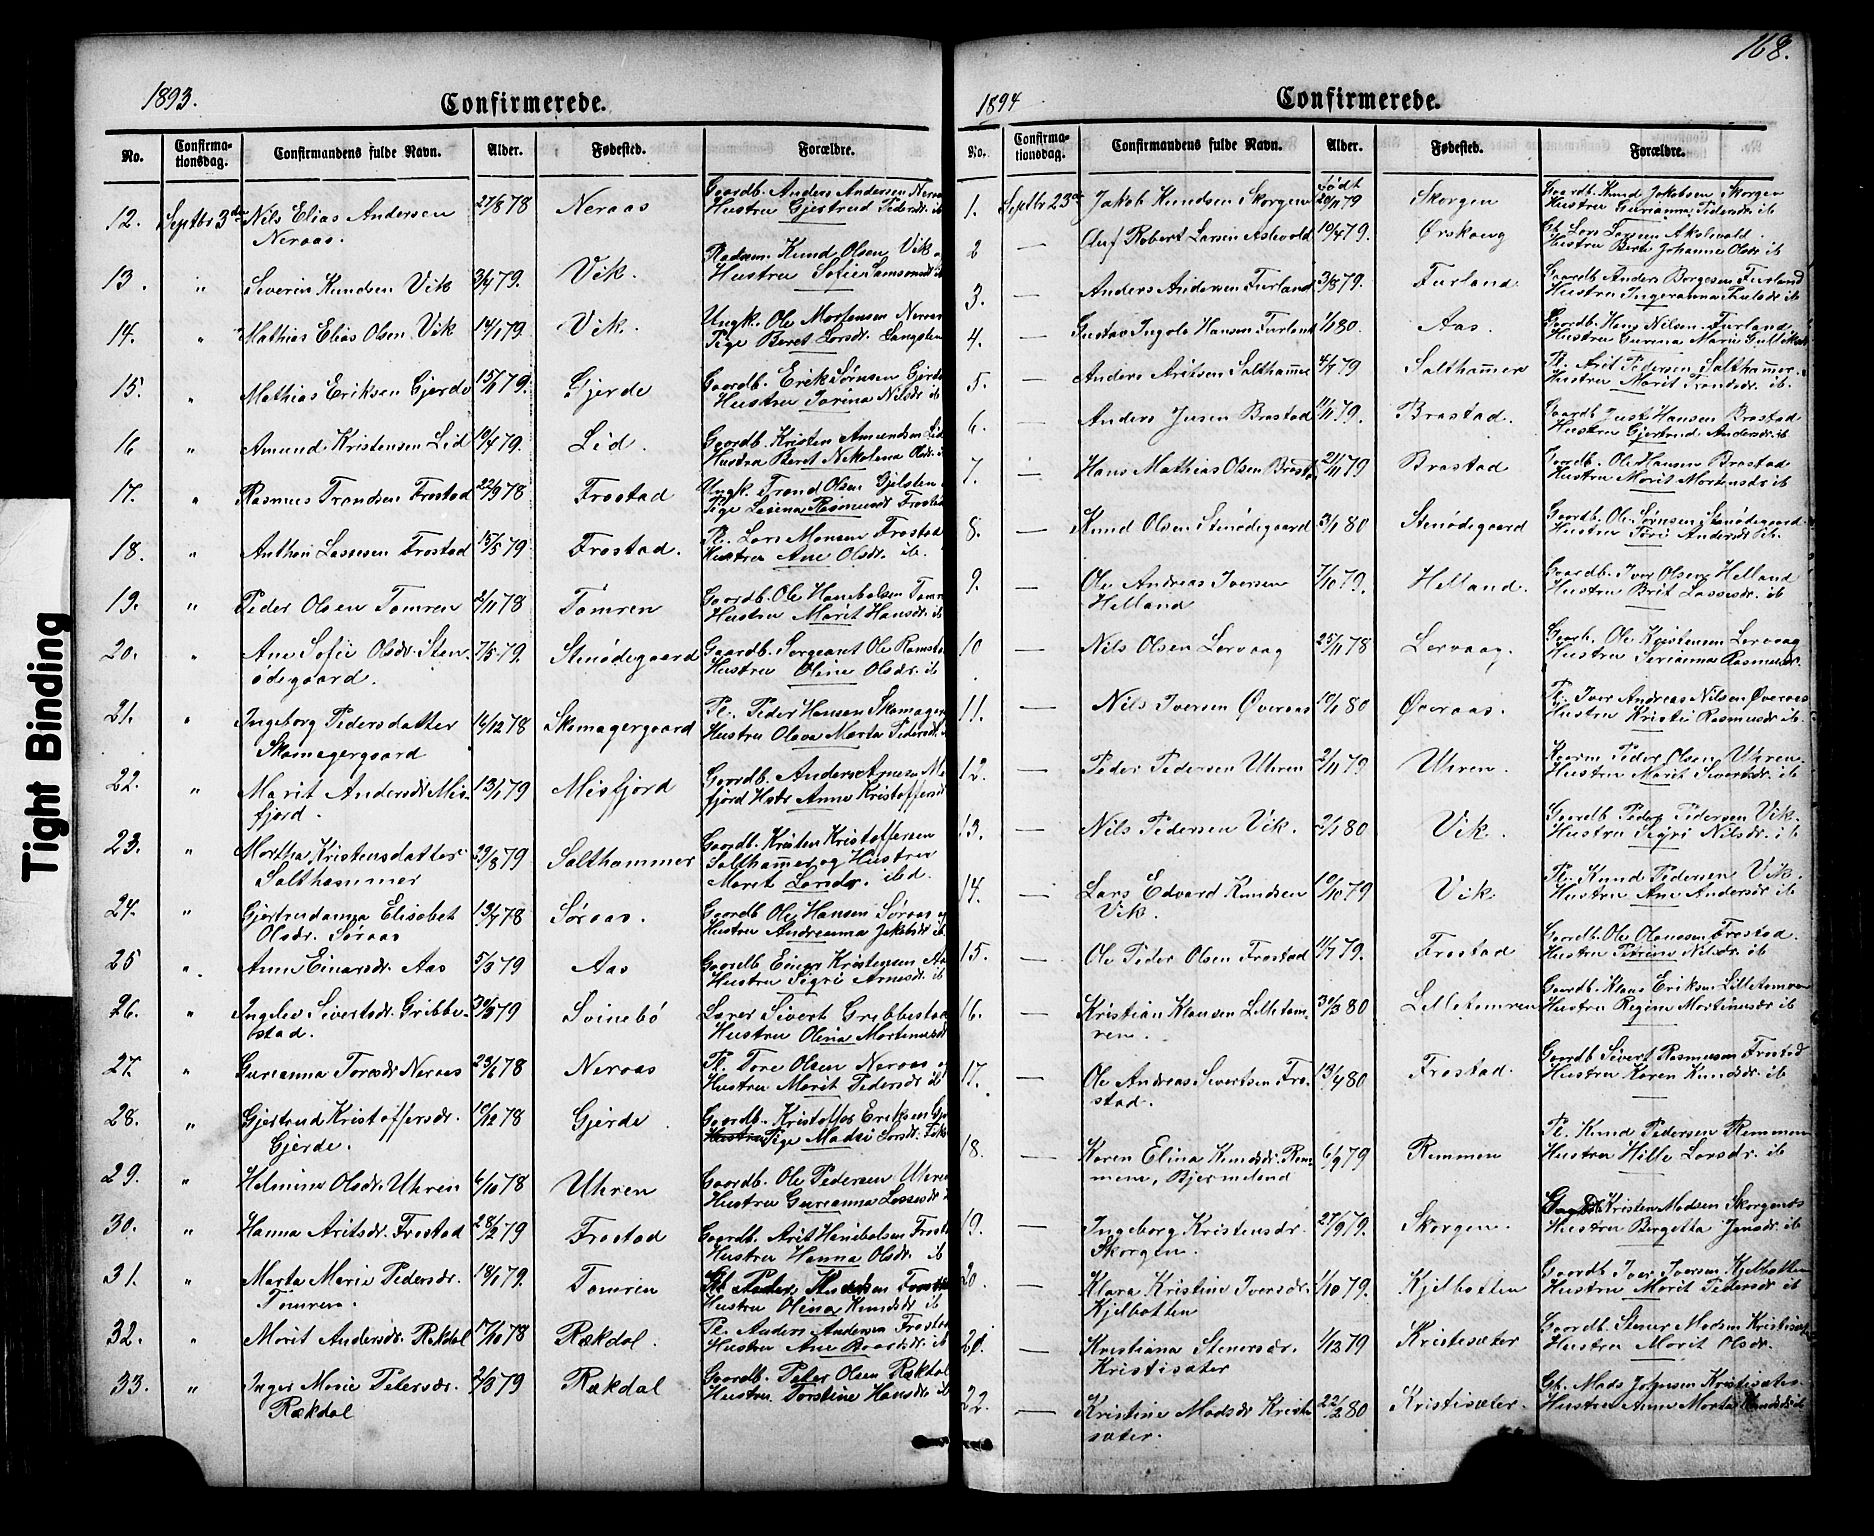 Tight Binding
1893.
Confirmerede.
No. Confirma-tionsdag. Confirmandens fulde Navn. Alder. Fødested. Forældre.
12. Septbr 3die Nils Elias Andersen 27/8 78 Neraas Gaardb. Anders Andersen Neraas
Neraas. Hustru Gjertrud Pedersdr ib
13. " Severin Knudsen Vik 3/4 79. Vik. Knud Olsen Vik
Hustru Sofie Samsonsdr ib
14. " Mathias Elias Olsen Vik 14/1 79. Vik. Ungk. Ole Mortensen Neraas
Pige Beret Larsdr. Langsten
15. " Mathias Eriksen Gjerde 15/1 79. Gjerde Gaardb. Erik Sørnsen Gjerde
Hustru Jorina Nilsdr ib
16 " Amund Kristensen Lid 10/4 79. Lid. Gaardb. Kristen Amundsen Lid
Hustru Beret Nikolena Olsdr. ib
17. " Rasmus Trondsen Frostad 22/9 78 Frostad Ungk. Trond Olsen Gjelsten
Pige Lasina Rasmusdr Frostad
18. " Anthon Larsen Frostad 15/5 79 Frostad. Pl. Lars Monsen Frostad
Hustru Ane Olsdr. ib.
19. " Peder Olsen Tomren 2/11 78 Tomren Gaardb. Ole Hanibalsen Tomren
Hustru Marit Hansdr. ib
20. " Ane Sofie Olsdr. Sten- 7/5 79. Stenødegaard Gaardb. Sergeant Ole
ødegaard. Hustru Oline Olsdr. ib
21. " Ingeborg Pedersdatter 16/12 78 Skomagergaard Pl. Peder Hansen Skomager
Skomagergaard Hustru Olava Marta Pedersdr.
22. " Marit Andersdr. Mis- 13/1 79 Misfjord Gaardb. Anders Arnesen Mis
fjord. fjord Hstr Anne Kristoffersdr
23. " Martha Kristensdatter 29/8 79 Salthammer Gaardb. Kristen Kristoffersen
Salthammer Salthamer og Hustru
Marit Larsdr. ibd.
24. " Gjertrudanna Elisabet 13/7 78 Søraas. Gaardb Ole Hansen Søraas
Olsdr. Søraas Hustru Andreanna Jakobsdr ib
25 " Anne Einarsdr. Aas 5/3 79 Aas Gaardb Einar Kristensen Aas
Hustru Sigri Arnesdr ib
26. " Ingelev Sivertsdr. Gribbe- 30/3 79 Svinebø Lærer Sivert Gribbestad
stad. Hustru Olina Mortensdr
27. " Gurianna Toresdr. Neraas 23/6 78 Neraas Pl. Tore Olsen Neraas
Hustru Marit Pedersdr ib
28. " Gjertrud Kristoffersdr. 10/12 78 Gjerde Gaardb. Kristoffer Eriksen Gj
Gjerde. Hustru Pige Madli Larsdr.
29. " Helmina Olsdr. Uhren 6/10 78 Uhren Gaardb. Ole Pedersen Uhren
Hustru Gurianna Lassesdr
30. " Hanna Aritsdr. Frostad 28/2 79 Frostad Gaardb. Arit Hanibalsen Frostad
Hustru Hanna Olsdr. ib
31. " Marta Marie Pedersdr. 18/1 79. Tomren Peder Knudsen
Tomren. Hustru Olina Knudsdr ib
32. " Marit Andersdr. Rækdal 17/10 78 Rækdal. Pl. Anders Andersen Frostad
Hustru Ane Baardsdr. ib
33. " Inger Marie Petersdr. 2/3 79 Rækdal Gaardb. Peter Olsen Rækdal
Rækdal Hustru Torstine Hansdr. ib
168.
1894
Confirmerede.
No. Confirma-tionsdag. Confirmandens fulde Navn. Alder. Fødested. Forældre.
1. Septbr 23de Jakob Knudsen Skorgen Født 20/11 79 Skorgen Gaardb. Knud Jakobsen Skorgen
Hustru Gurianna Pedersdr ib
2 — Oluf Robert Larsen Aslevold 10/4 79. Ørskoug Lars Larsen
Hustru Berte Johanne Olsdr ib
3. — Anders Andersen Furland 3/8 79. Furland Gaardb Anders Borgesen Furland
Hustru Ingeranna ib
4. — Gustav Ingolo Hansen Furland 1/1 80 Aas. Gaardb. Hans Nilsen Furland
Hustru Gurina Marie
5. — Anders Aritsen Salthammer 4/7 79 Salthammer Pl. Arit Pedersen Salthammer.
Hustru Marit Trondsdr. ib.
6. — Anders Jusen Brastad 11/11 79. Brastad. Gaardb Just Hansen Brastad
Hustru Gjertrud Andersdr. ib
7. — Hans Mathias Olsen Brast 21/11 79 Brastad Gaardb. Ole Hansen Brastad
Hustru Marit Mortensdr ib
8. — Knud Olsen Stenødegaard 3/1 80 Stenødegaard Gaardb. Ole Sørnsen Stenødegaard
Hustru Tori Andersdr ib.
9. — Ole Andreas Iversen 7/10 79. Helland. Gaardb. Iver Olsen Helland
Helland Hustru Brit Lassesdr. ib
10 — Nils Olsen Lervaag 25/11 78 Lervaag. Gaardb. Ole Kristensen Lervaag
Hustru Serianna Rasmusdr.
11. — Nils Iversen Øveraas 10/1 80 Øveraas. Pl. Iver Andreas Nilsen Øveraas
Hustru Kristi Rasmusdr ib
12. — Peder Pedersen Uhren 2/11 79 Uhren. Peder Olsen Uhren
Hustru Marit Sivertsdr. ib
13. — Nils Pedersen Vik. 2/1 80 Vik. Gaardb Peder Pedersen Vik.
Hustru Sigri Nilsdr. ib
14. — Lars Edvard Knudsen 10/10 79 Vik Pl. Knud Pedersen Vik.
Vik. Hustru Ane Andersdr ib
15. — Ole Peder Olsen Frostad 11/7 79. Frostad Gaardb. Ole Frostad.
Hustru Petrine Nilsdr. ib
16. — Kristian Klausen Lilletom- 30/3 80 Lilletomren Gaardb. Klaus Eriksen Lilletomren
ren. Hustru Regine Mortinusdr ib
17. — Ole Andreas Sivertsen Fro- 13/4 80 Frostad. Gaardb Sivert Rasmusen Frostad
stad. Hustru Karen Knudsdr. ib
18. — Karen Elina Knudsdr. Rem- 6/9 79 Remmen Pl. Knud Pedersen Remmen
mem, Bjermeland Hustru Hille Larsdr. ib
19. — Ingeborg Kristensdr. 27/9 79. Skorgen. Kristen Madsen Skorgen
Skorgen. Hustru Birgetta Jensdr. ib
20. — Klara Kristine Iversdr. 1/10 79. Kjelbotten Gaardb Iver Iversen Kjelbotten
Kjelbotten Hustru Marit Pedersdr ib
21. — Kristiana Stenersdr. 1/12 79 Kristisæter Gaardb. Stener Madsen Kristisæt
Kristisæter Hustru Marit Olsdr.
22. — Kristine Madsdr Kristi 22/2 80 Kristisæter. Gb. Mads Johnsen Kristisæter
sæter. Hustru Anne Marta Knudsdr ib